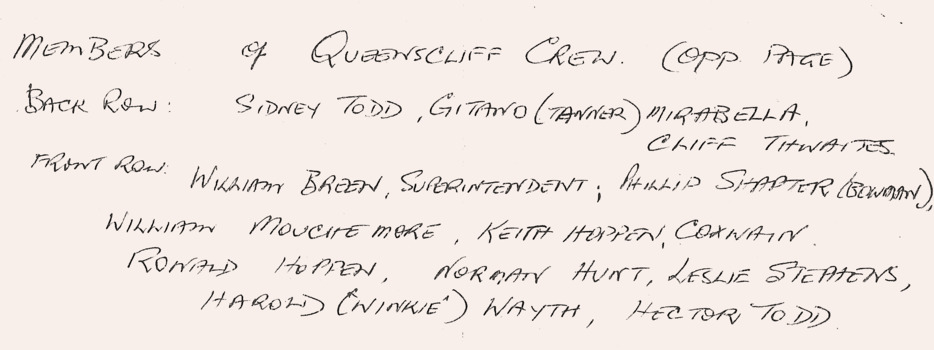 MEMBERS of QUEENSCLIFF CREW. (OPP PAGE)
BACK ROW: SIDNEY TODD, GITANO (TANNER) MIRABELLA,
CLIFF THWAITES
FRONT ROW: WILLIAM BREEN, SUPERINTENDENT; PHILLIP SHAPTER (BOWMAN),
WILLIAM MOUCHEMORE, KEITH HOPPEN, COXWAIN.
RONALD HOPPEN, NORMAN HUNT, LESLIE STEPHENS,
HAROLD ("WINKIE") WAYTH, HECTOR TODD